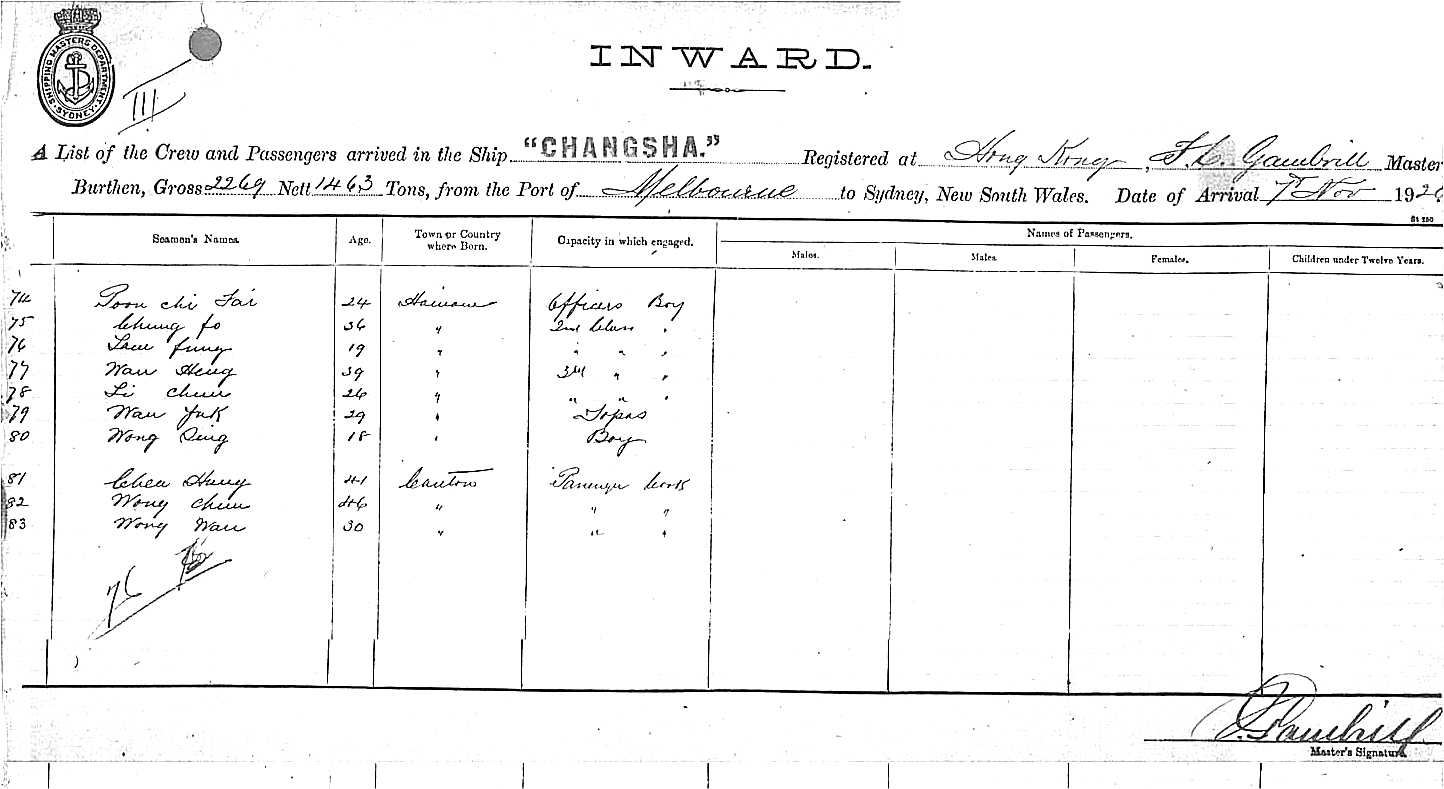 SHIPPING MASTERS DEPARTMENT
SYDNEY
III
INWARD.
A List of the Crew and Passengers arrived in the Ship "CHANGSHA." Registered at Hong Kong, F. L. Gambrill Master
Burthen, Gross 2269 Nett 1463 Tons, from the Port of Melbourne to Sydney, New South Wales. Date of Arrival 7th Nov 192
Seamen's Names. Age. Town or Country where Born. Capacity in which engaged. Names of Passengers.
Males. Males. Females. Children under Twelve Years.
74 Poon chi Tai 24 Hainan Officers Boy
75 Chung fo 36 " 2nd Class "
76 Lam fung 19 " " " "
77 Wan Heng 39 " 3rd " "
78 Li chun 26 " " " "
79 Wan Yuk 29 " Topas
80 Wong Sing 18 " Boy
81 Chea Hung 41 Canton Passenger Cook
82 Wong chun 46 " " "
83 Wong Wan 30 " " "
76
F. Gambrill
Master's Signature.